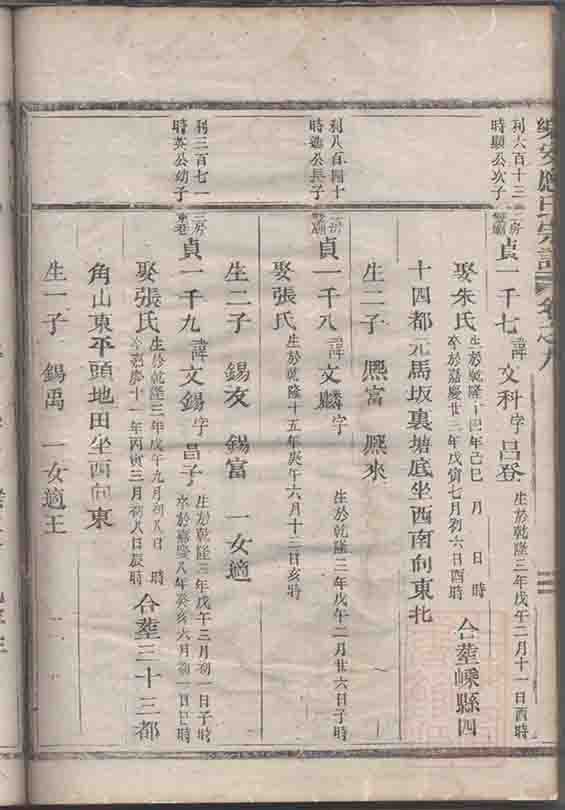 樂安應氏宗譜 卷之九
利六百十三
時顯公次子
二房
貞一千七 諱文科 字昌登 生於乾隆三年戊午二月十一日酉時
娶朱氏 生於乾隆十四年己巳 月 日 時
卒於嘉慶廿三年戊寅七月初六日酉時
合塟嵊縣四
十四都元馬坂裏塘底坐西南向東北
生二子 熙富 熙來
利八百四十
時進公長子
二房
貞一千八 諱文麟 字 生於乾隆三年戊午二月廿六日子時
娶張氏 生於乾隆十五年庚午六月十三日亥時
生二子 錫友 錫富 一女適
利三百七一
時英公幼子
二房
貞一千九 諱文錫 字昌子 生於乾隆三年戊午三月初一日子時
卒於嘉慶八年癸亥六月初一日巳時
娶張氏 生於乾隆三年戊午九月初八日 時
卒嘉慶十一年丙寅三月初八日辰時
合塟三十三都
角山東平頭地田坐西向東
生一子 錫禹 一女適王